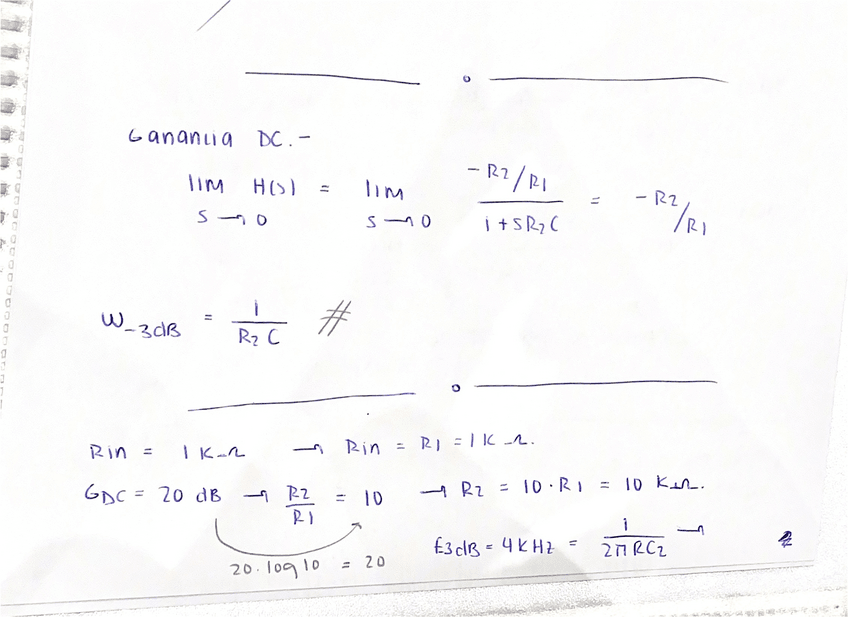 Ganancia DC.-
lim H(s) = lim -R2/R1 / 1+SR2C = -R2/R1
S→0 S→0
W-3dB = 1 / R2 C #
Rin = 1K Ω → Rin = R1 = 1K Ω.
GDC = 20 dB → R2/R1 = 10 → R2 = 10·R1 = 10 KΩ.
20·log 10 = 20
f3dB = 4KHz = 1 / 2π RC2 →